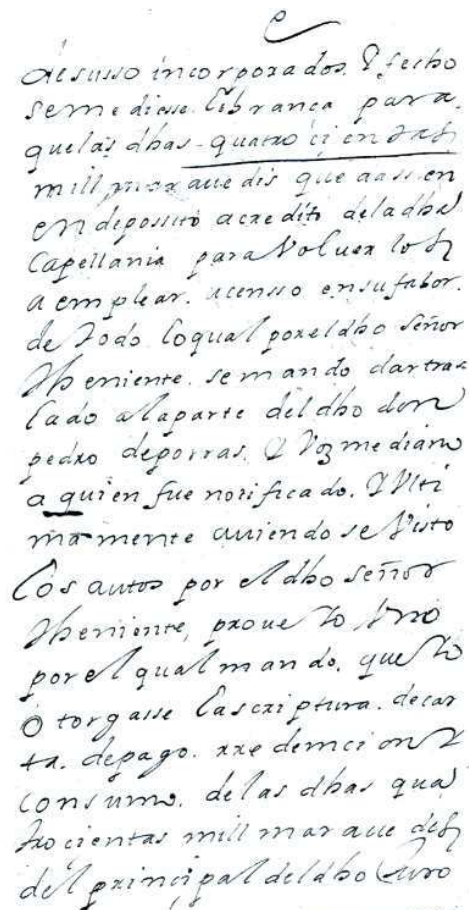 de susso incorporados. Y fecho
se me diesse librança para
que las dhas quatrocientas
mill maravedis que aassen
en deposito a credito de la dha
Capellania para Volver los
a emplear. a censso en su fabor.
de todo lo qual por el dho señor
Theniente. se mando dar tras
lado a la parte del dho don
pedro de porras. Y Vozmediano
a quien fue notificado. Y Ulti
mamente auiendose Visto
los autos por el dho señor
Theniente, proueyo Auto
por el qual mando. que yo
otorgasse la scriptura. de car
ta. de pago. rredemcion Y
consumo. de las dhas qua
trocientas mill maraue dis
del principal del dho Juro